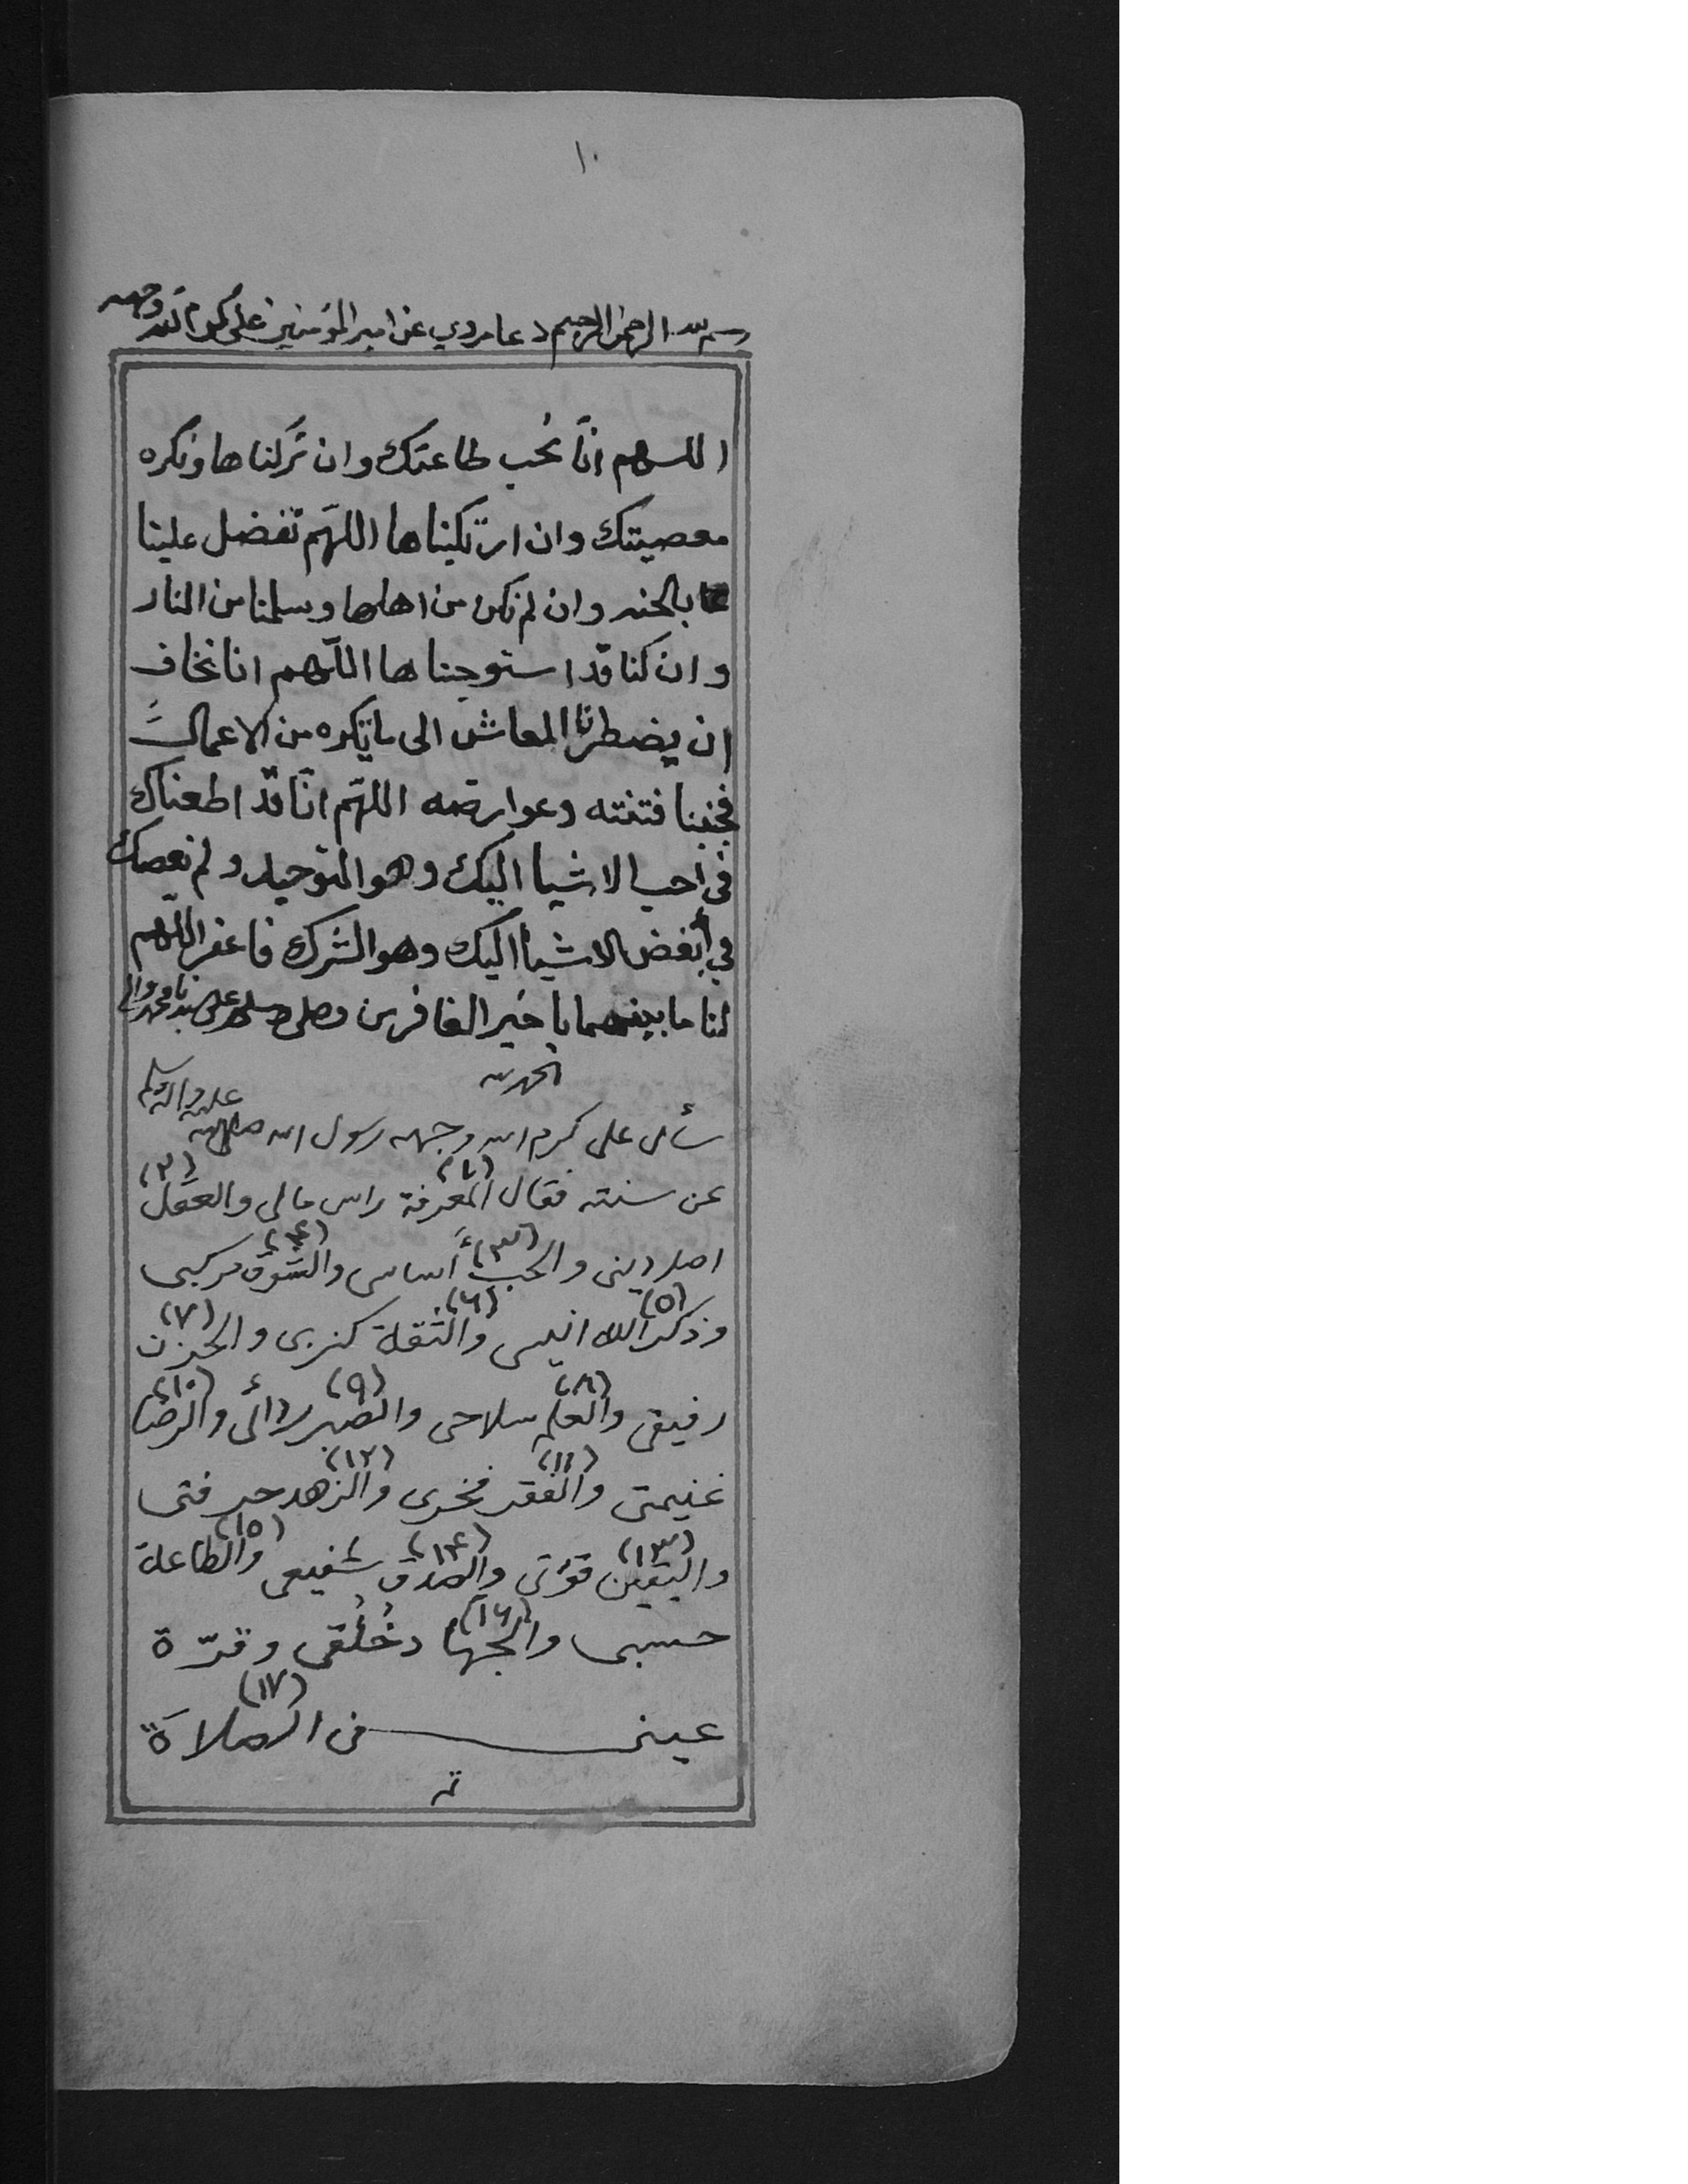 ١٠
بسم الله الرحمن الرحيم دعا مروي عن امير المؤمنين على كرم الله وجهه
اللهم انّا نحب طاعتك وان تركناها ونكره
معصيتك وان ارتكبناها اللهّم تفضل علينا
بالجنه وان لم نكن من اهلها وسلمنا من النار
وان كنا قد استوجبناها اللّهم انا نخاف
ان يضطرنا المعاش الى ما تكره من الاعمال
فجنبنا فتنته وعوارضه اللهّم انّا قد اطعناك
في احب الاشيا اليك وهو التوحيد ولم نعصك
في أبغض الاشيا اليك وهو الشرك فاغفر اللّهم
لنا ما بينهما يا خير الغافرين وصلى الله على سيدنا محمد واله
الحمد لله
سأل على كرم الله وجهه رسول الله صلى الله عليه واله وسلم
عن سنته فقال المعرفة (١) راس مالى والعقل (٢)
اصل دينى والحب (٣) أساسى والشوق (۴) مركبى
وذكر الله (٥) انيسى والثقة (٦) كنزى والحزن (٧)
رفيقى والعلم (٨) سلاحى والصبر (٩) ردائى والرضا (١٠)
غنيمتى والفقر (١١) فخرى والزهد (١٢) حرفتى
واليقين (١٣) قوّتى والصدق (١۴) شفيعى والطاعة (١٥)
حسبى والجهاد (١٦) خُلُقى وقرّة
عينى فى الصلاة (١٧)
تم